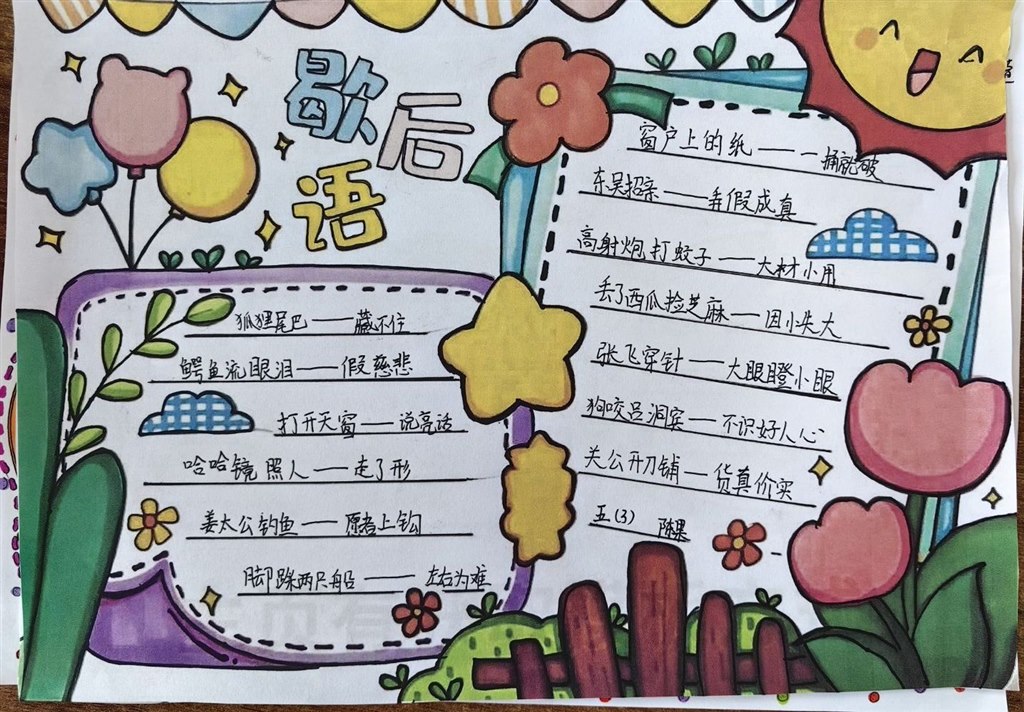 歇后语
狐狸尾巴——藏不住
鳄鱼流眼泪——假慈悲
打开天窗——说亮话
哈哈镜照人——走了形
姜太公钓鱼——愿者上钩
脚踩两只船——左右为难
窗户上的纸——一捅就破
东吴招亲——弄假成真
高射炮打蚊子——大材小用
丢了西瓜捡芝麻——因小失大
张飞穿针——大眼瞪小眼
狗咬吕洞宾——不识好人心
关公开刀铺——货真价实
五(3)